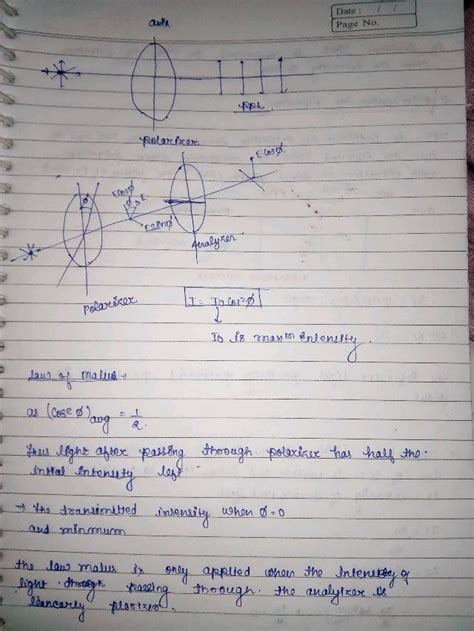 Date : / /
Page No.
axis
ppl
polarizer
E cosϕ
E cosϕ
ϕ
ϕ E
E sinϕ
Analyzer
Polarizer
I = I₀ cos²ϕ
I₀ is maxm intensity.
Law of Malus.
as (cos²ϕ)avg = 1/2
Thus light after passing through polarizer has half the
initial intensity left
→ The transmitted intensity when ϕ=0
and minimum
the law malus is only applied when the intensity of
light through passing through the analyzer is
linearly plarizer.